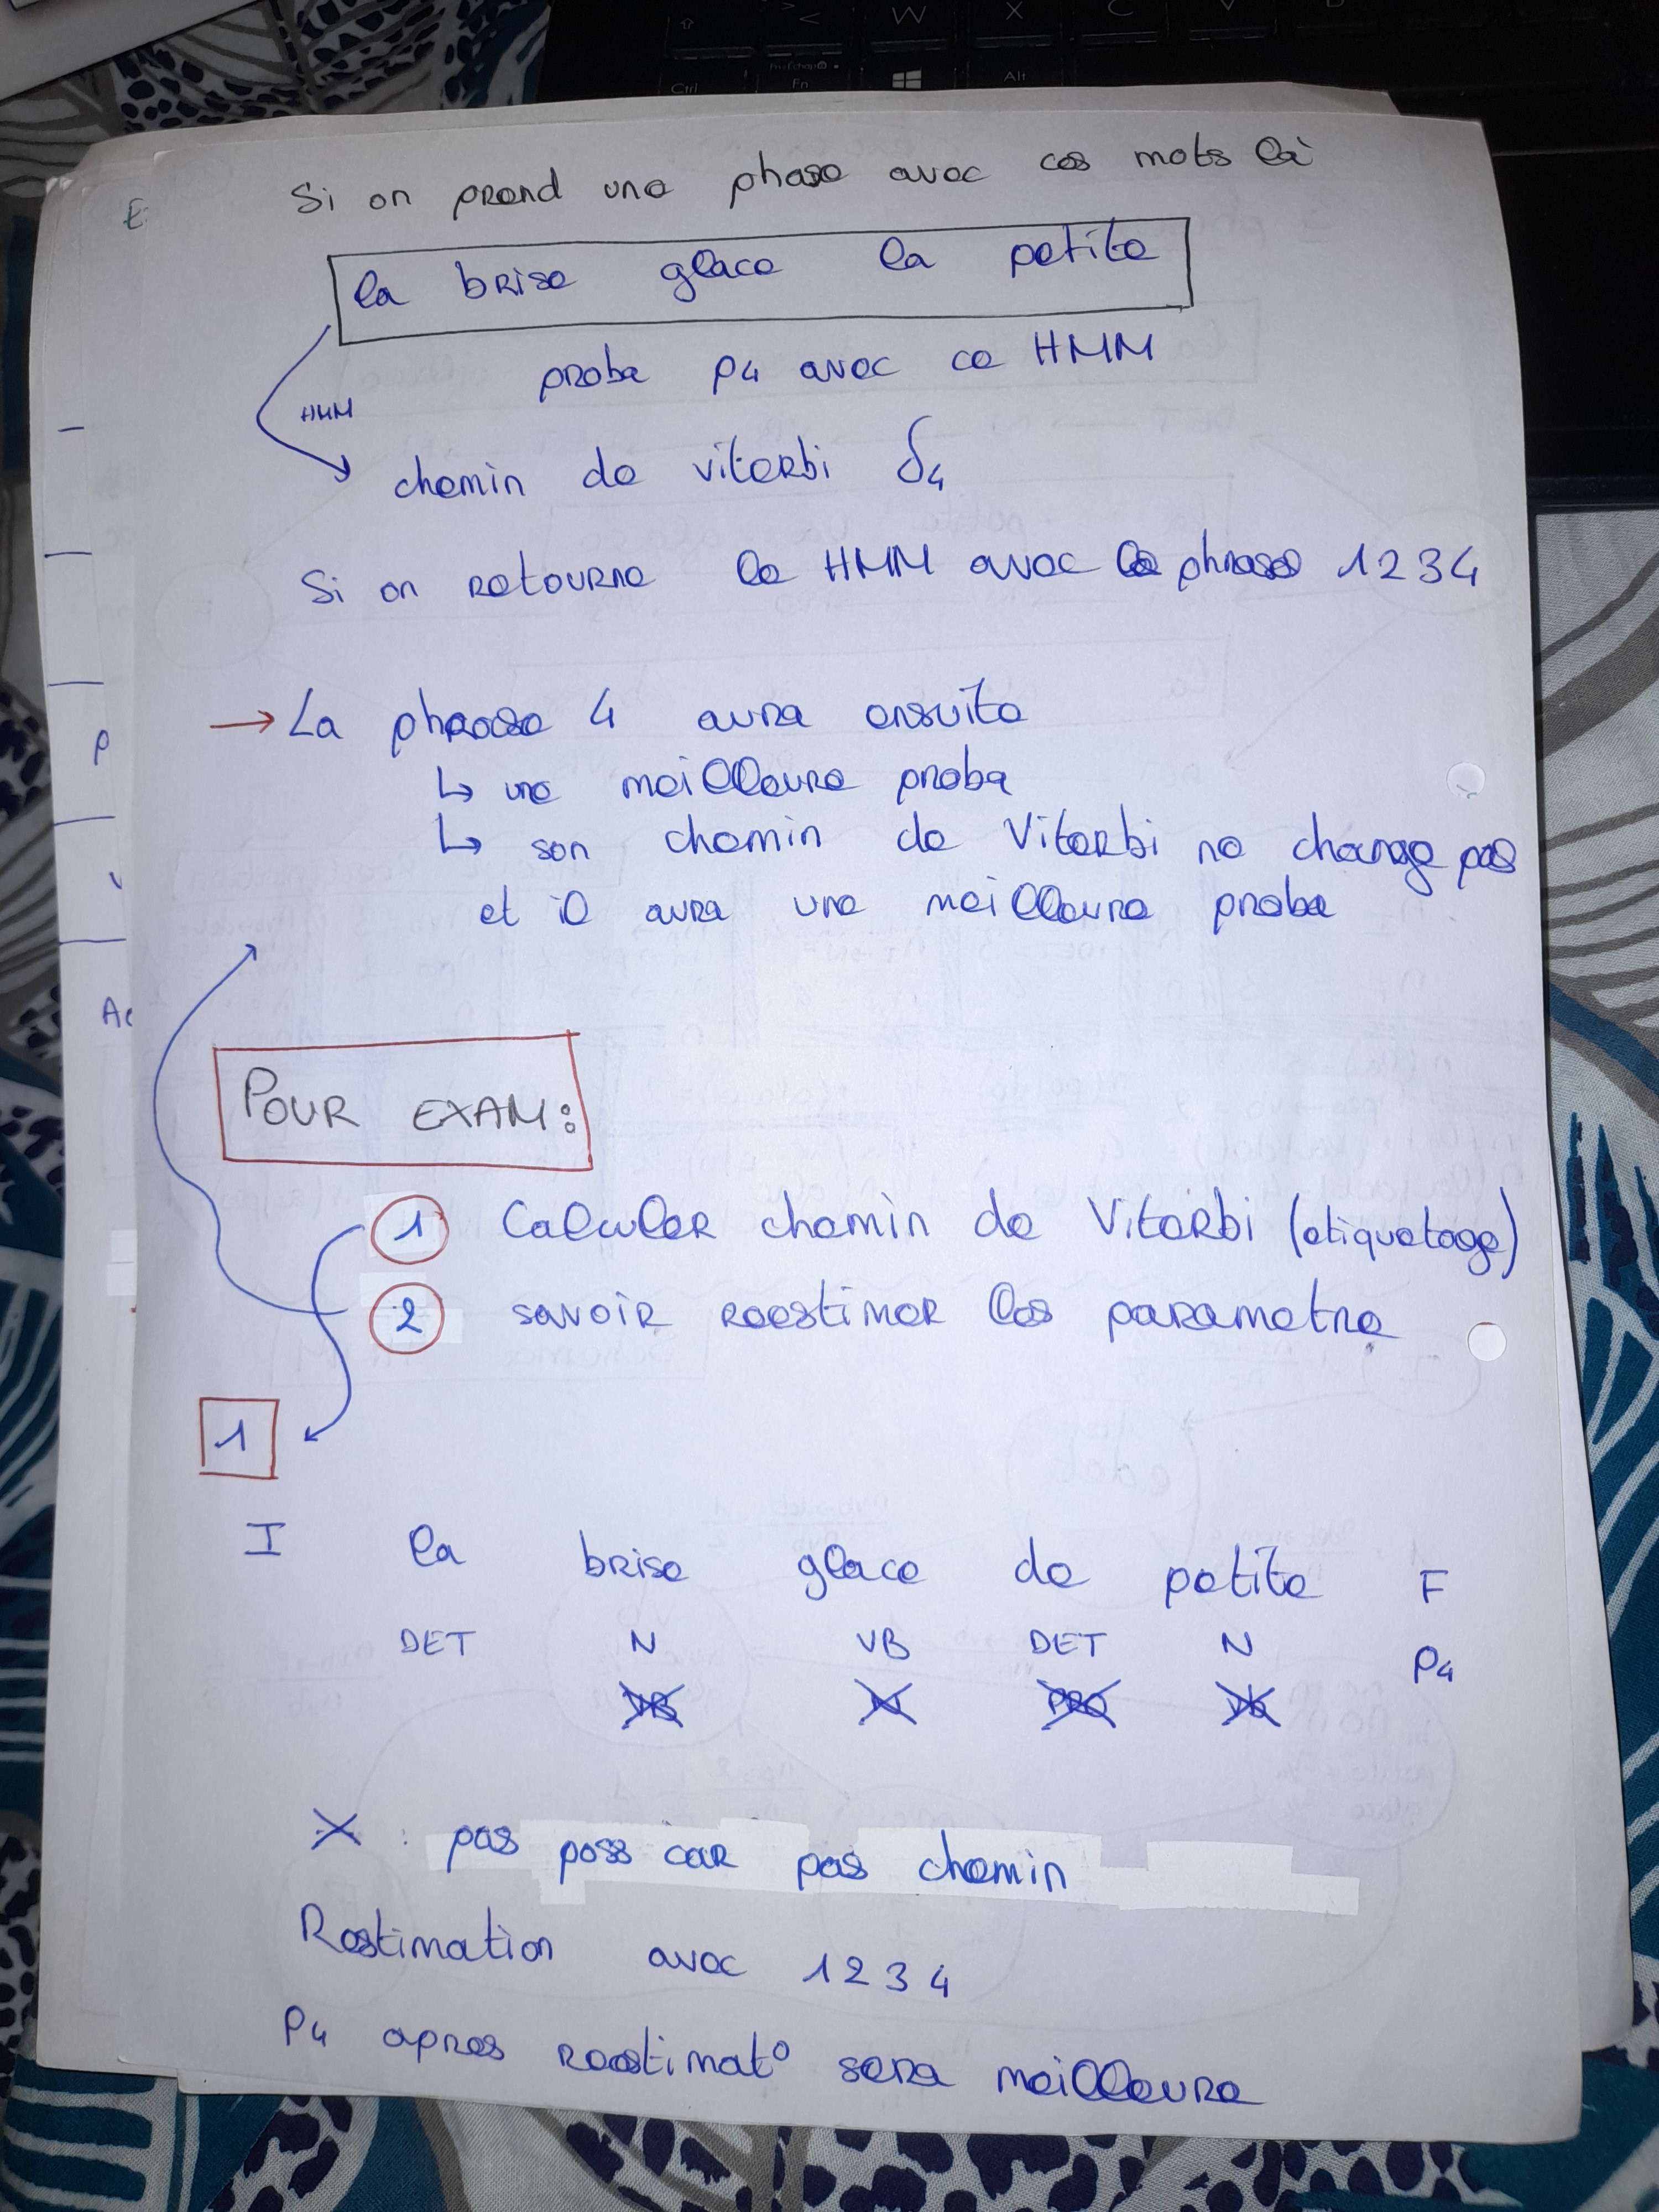 W X C V
Ctrl Fn Alt
Si on prend une phase avec ces mots là
la brise glace la petite
proba P4 avec ce HMM
HMM
chemin de viterbi δ4
Si on retourne le HMM avec le phrase 1234
→ La phrase 4 aura ensuite
↳ une meilleure proba
↳ son chemin de Viterbi ne change pas
et il aura une meilleure proba
P
Ac
POUR EXAM:
1 Calculer chemin de Viterbi (etiquetage)
2 savoir reestimer les parametre
1
I la brise glace de petite F
DET N VB DET N P4
VB N PRO Vb
X : pas poss car pas chemin
Restimation avec 1234
P4 apres reestimat° sera meilleure